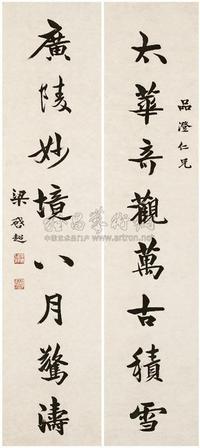 品澄仁兄
太華奇觀萬古積雪
廣陵妙境八月驚濤
梁啓超